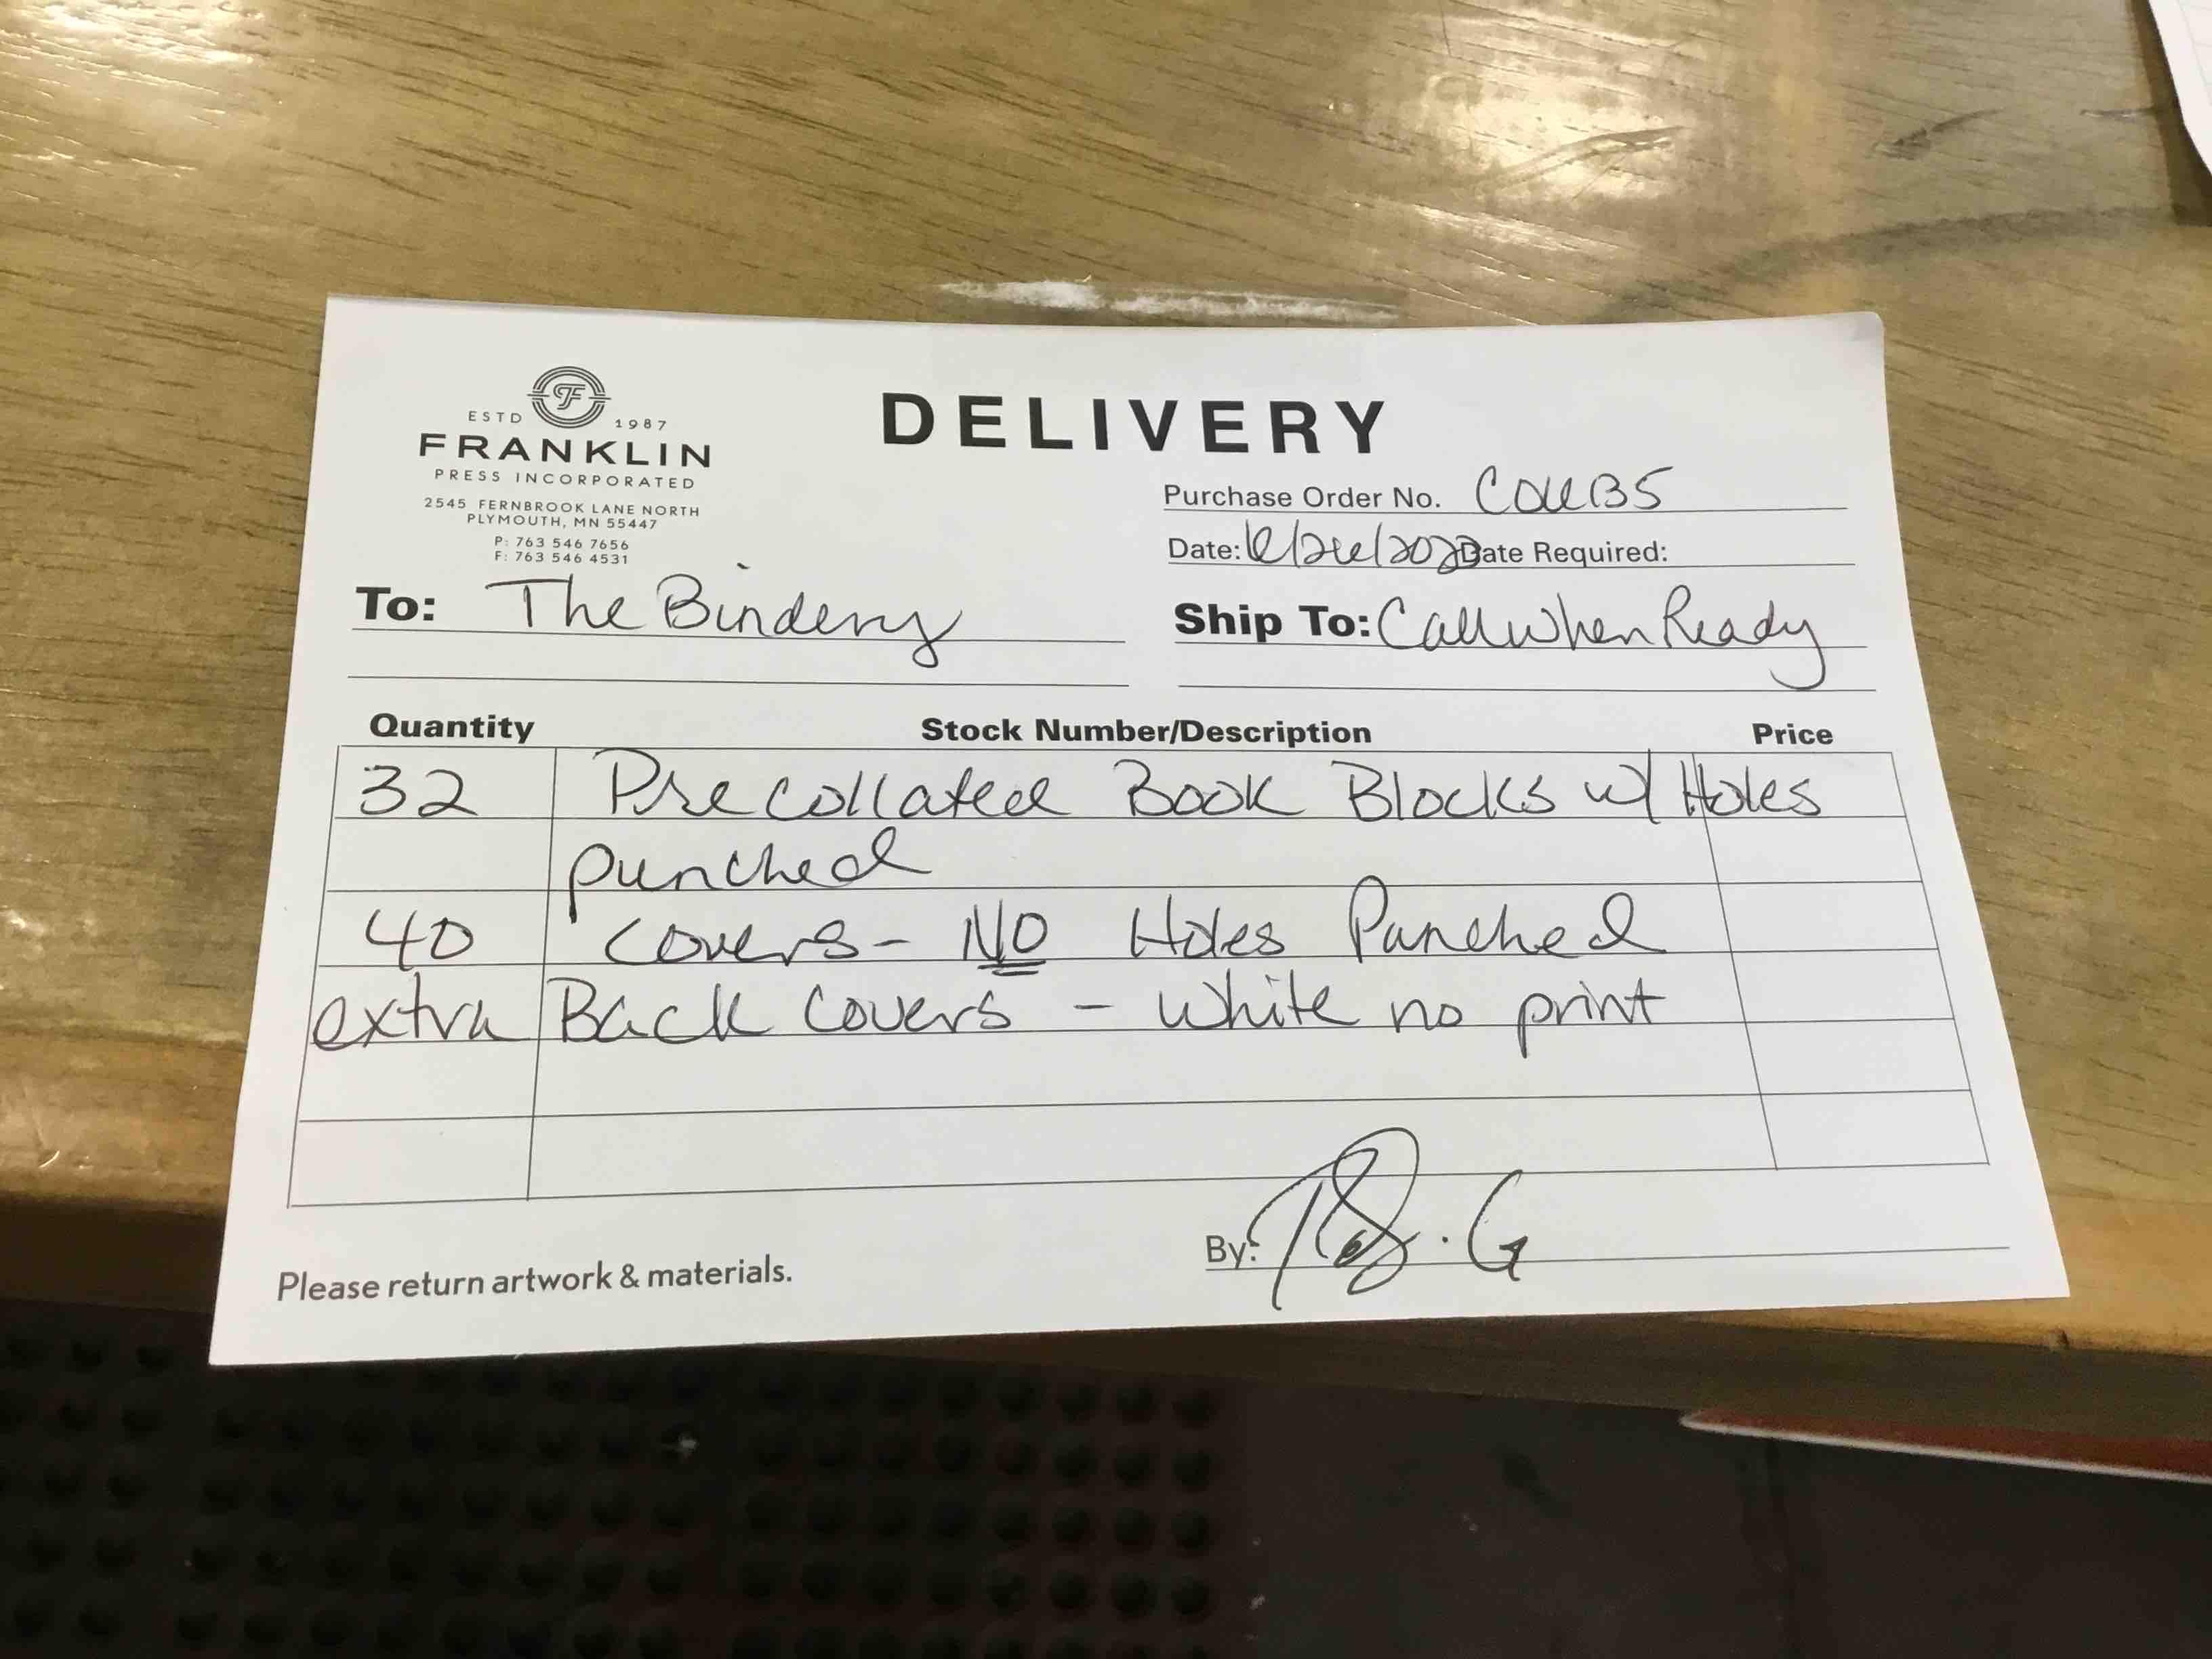 ESTD 1987
FRANKLIN
PRESS INCORPORATED
2545 FERNBROOK LANE NORTH
PLYMOUTH, MN 55447
P: 763 546 7656
F: 763 546 4531
DELIVERY
Purchase Order No.
Date: Date Required:
To: The Bindery
Ship To: Call When Ready
Quantity Stock Number/Description Price
32 Precollated Book Blocks w/ Holes
punched
40 Covers - NO Holes Punched
extra Back Covers - White no print
Please return artwork & materials.
By: